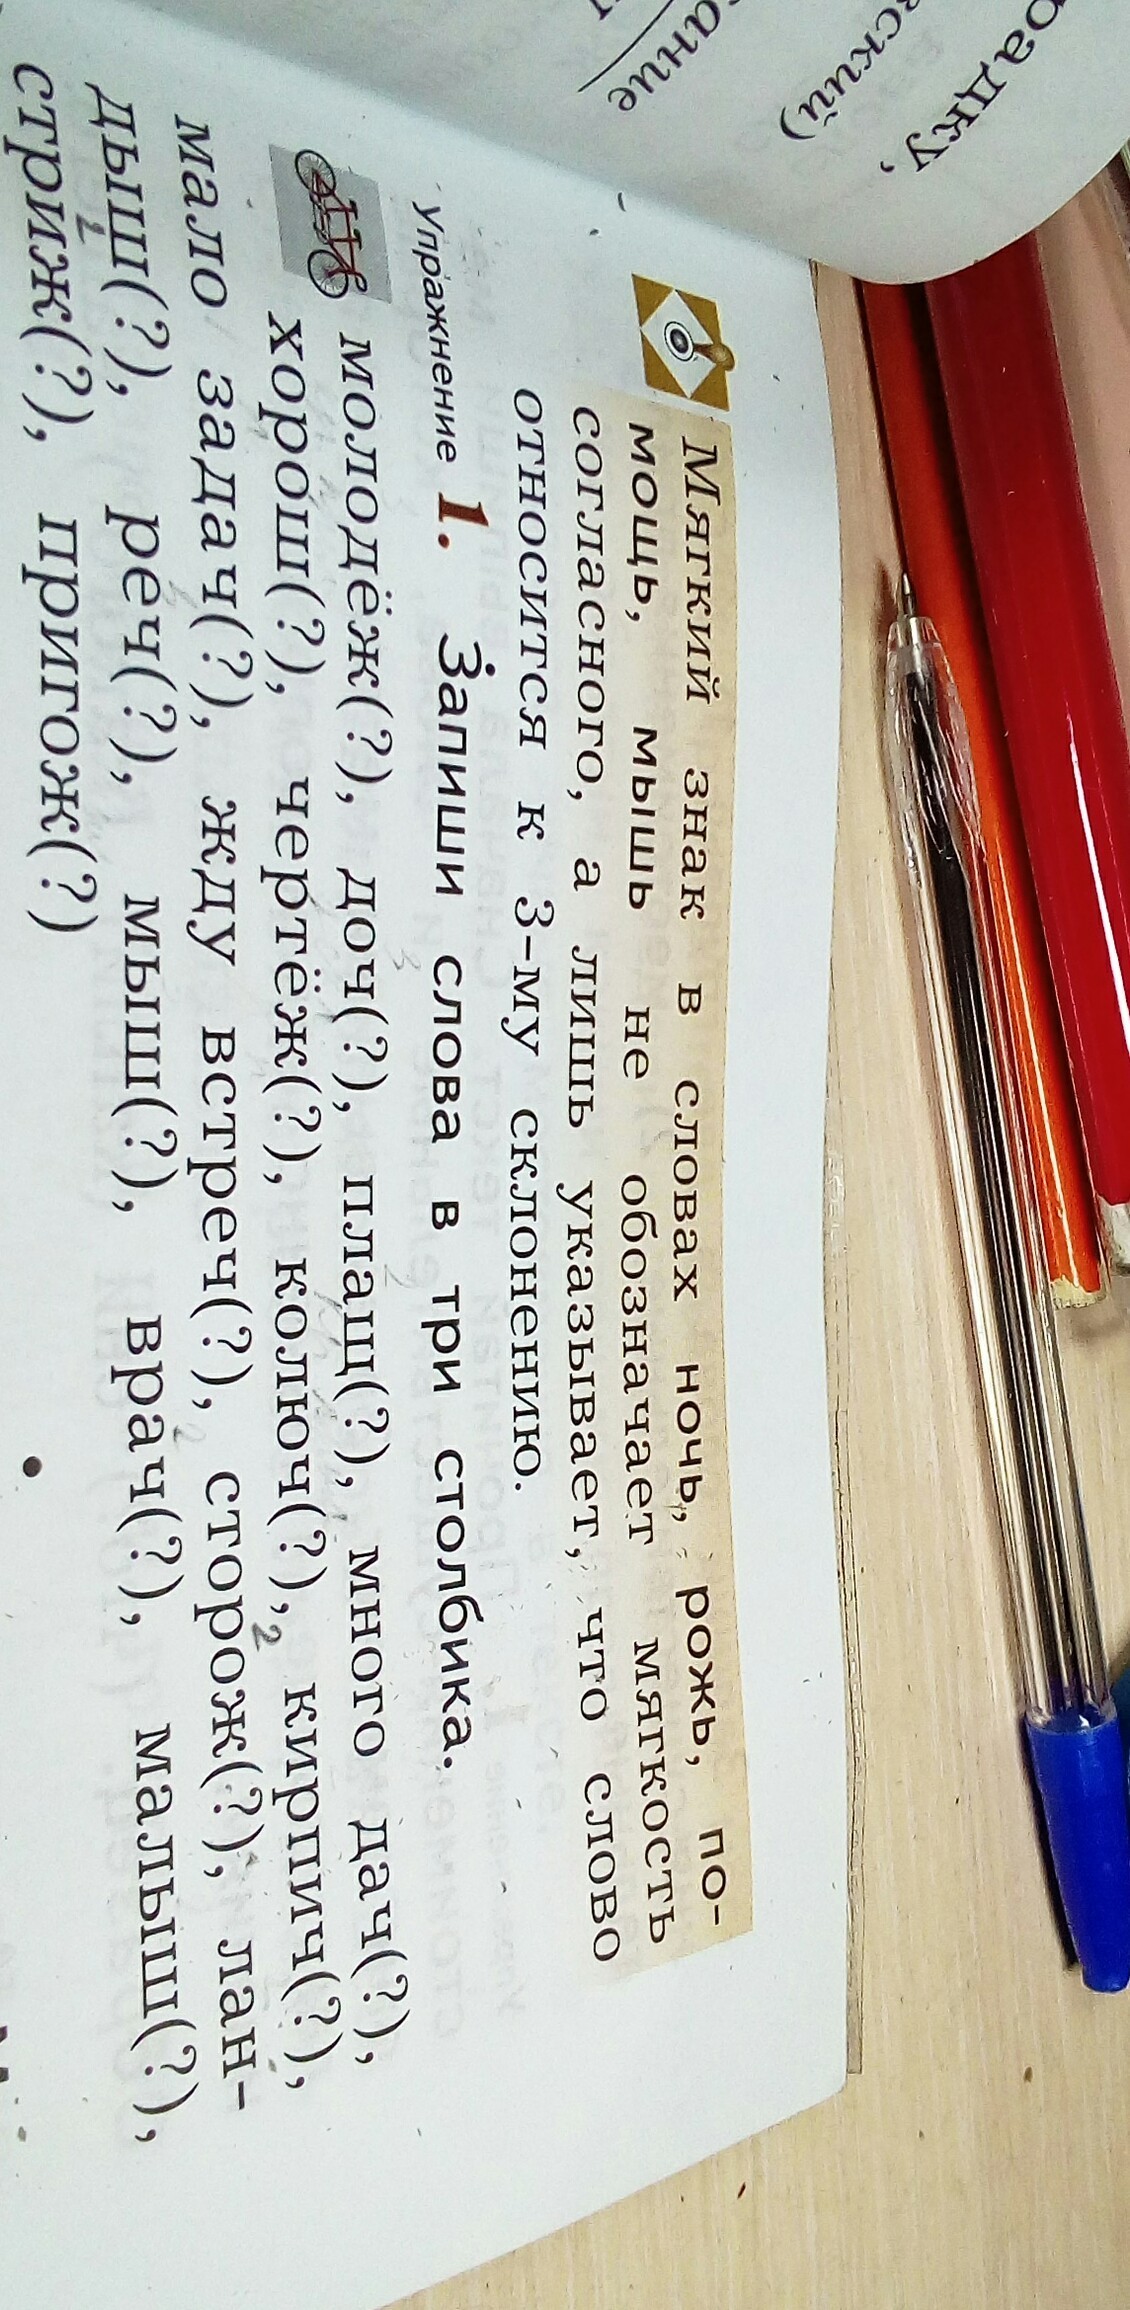 радку,
вский)
ание
Мягкий знак в словах ночь, рожь, по-
мощь, мышь не обозначает мягкость
согласного, а лишь указывает, что слово
относится к 3-му склонению.
Упражнение 1. Запиши слова в три столбика.
молодёж(?), доч(?), плащ(?), много дач(?),
хорош(?), чертёж(?), колюч(?), кирпич(?),
мало задач(?), жду встреч(?), сторож(?), лан-
дыш(?), реч(?), мыш(?), врач(?), малыш(?),
стриж(?), пригож(?)